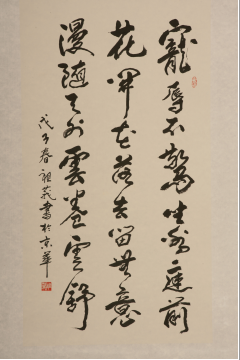 寵辱不驚坐看庭前
花開花落去留無意
漫隨天外雲卷雲舒
戊子春祖義書於京華